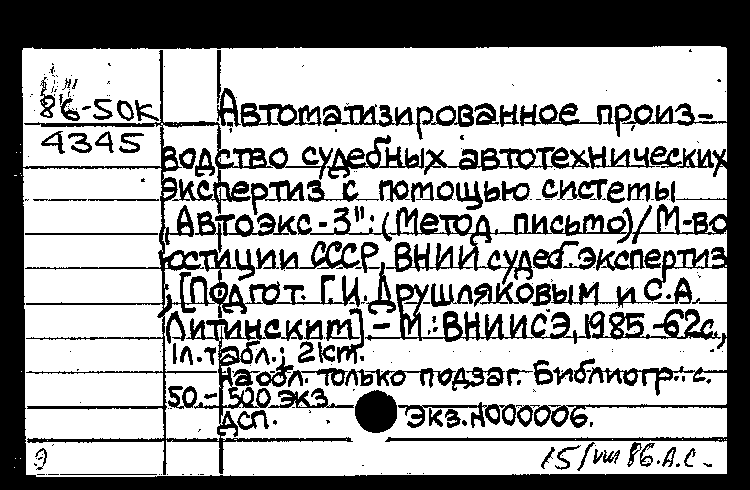 86-50К
4345
Автоматизированное произ-
водство судебных автотехнических
экспертиз с помощью системы
„Автоэкс-3": (Метод. письмо)/М-во
юстиции СССР, ВНИИ судеб. экспертиз
; [Подгот. Г.И. Друшляковым и С.А.
Литинским].- М.: ВНИИСЭ, 1985.-62с.,
1л. табл.; 21см.
На обл. только подзаг. Библиогр.: с.
50.- 500 экз.
ДСП. Экз.N000006.
Э 15/VIII 86. А.С.